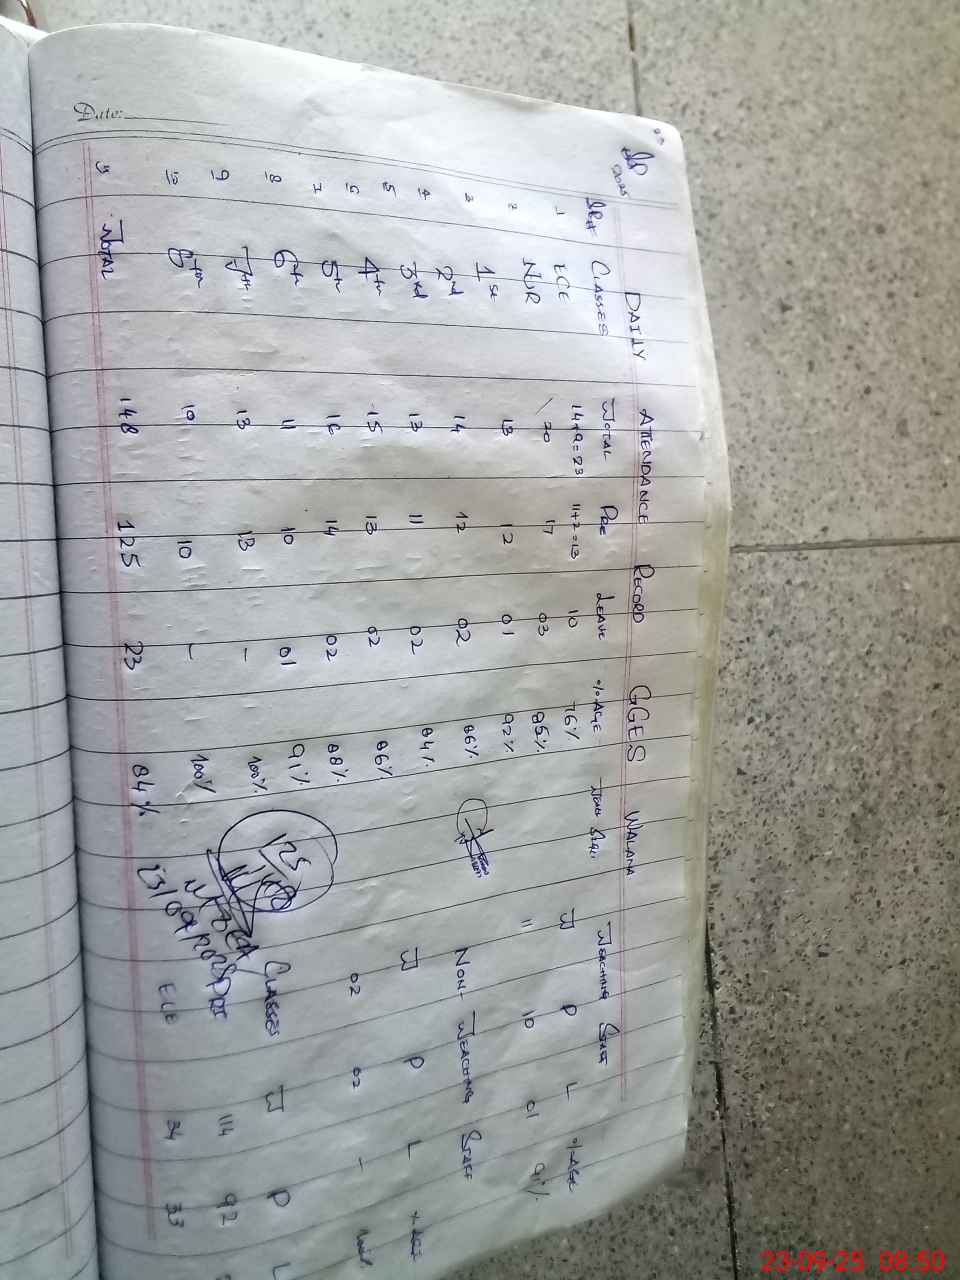 Date:
DAILY ATTENDANCE RECORD GGES WALANA
Sr# CLASSES TOTAL PRE LEAVE %AGE TEACHING STAFF
1 ECE 14+9=23 11+2=13 10 76% T P L %AGE
2 NUR 20 17 03 85% 11 10 01 91%
3 1st 13 12 01 92%
4 2nd 14 12 02 86% NON-TEACHING STAFF
5 3rd 13 11 02 84% T P L %AGE
6 4th 15 13 02 86%
7 5th 16 14 02 88% 02 02 -
8 6th 11 10 01 91% CLASSES T P L
9 7th 13 13 - 100% PRI 114 92
10 8th 10 10 - 100% ECE 34 33
11 TOTAL 148 125 23 84%
23/09/2025
23-09-25 08:50